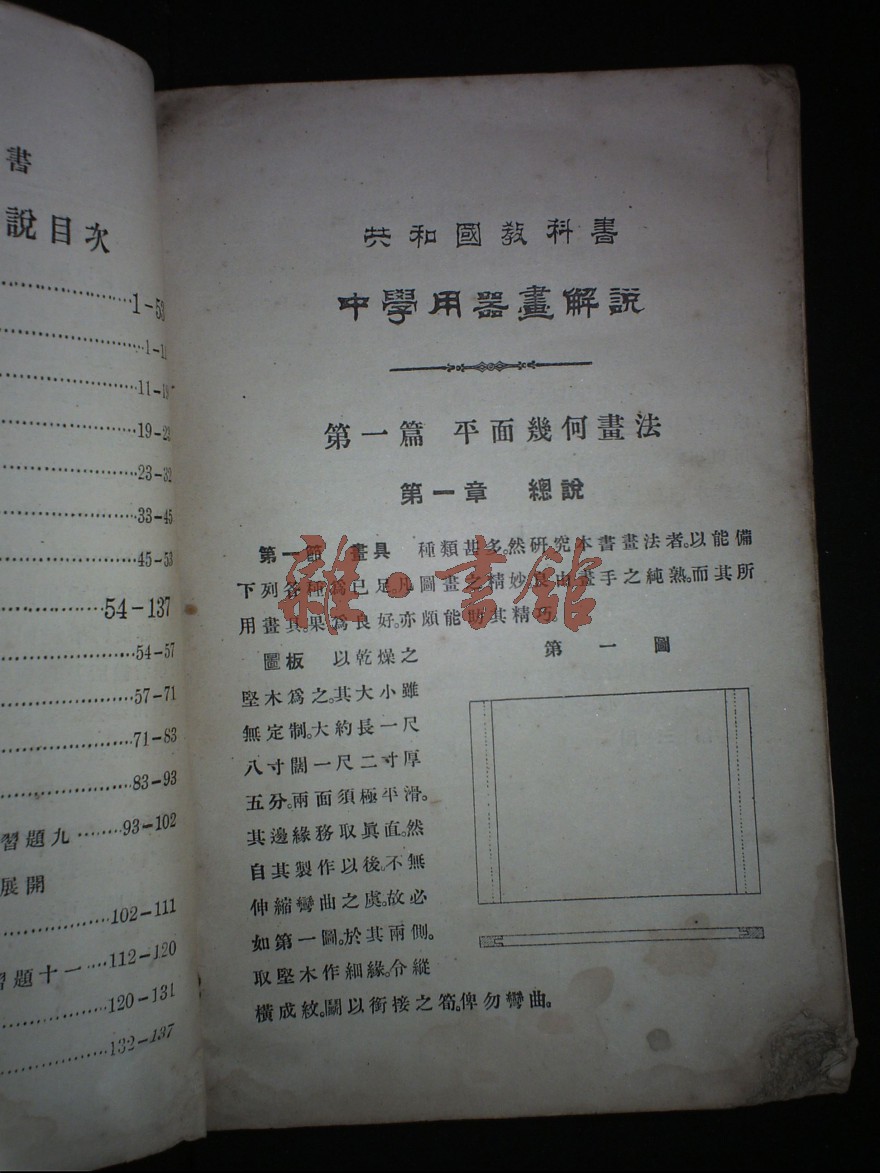 書
說目次
1-53
1-11
11-18
19-22
23-32
33-45
45-53
54-137
54-57
57-71
71-83
83-93
習題九 93-102
展開
102-111
習題十一 112-120
120-131
132-137
共和國教科書
中學用器畫解說
第一篇 平面幾何畫法
第一章 總說
第一節 畫具 種類甚多。然研究本書畫法者。以能備
下列各種為已足。凡圖畫之精妙。良由畫手之純熟。而其所
用畫具。果為良好。亦頗能助其精巧。
第一圖
圖板 以乾燥之
堅木爲之。其大小雖
無定制。大約長一尺
八寸闊一尺二寸厚
五分。兩面須極平滑。
其邊緣務取眞直。然
自其製作以後。不無
伸縮彎曲之虞。故必
如第一圖。於其兩側。
取堅木作細緣。令縱
橫成紋。鬭以銜接之筍。俾勿彎曲。
雜·書館